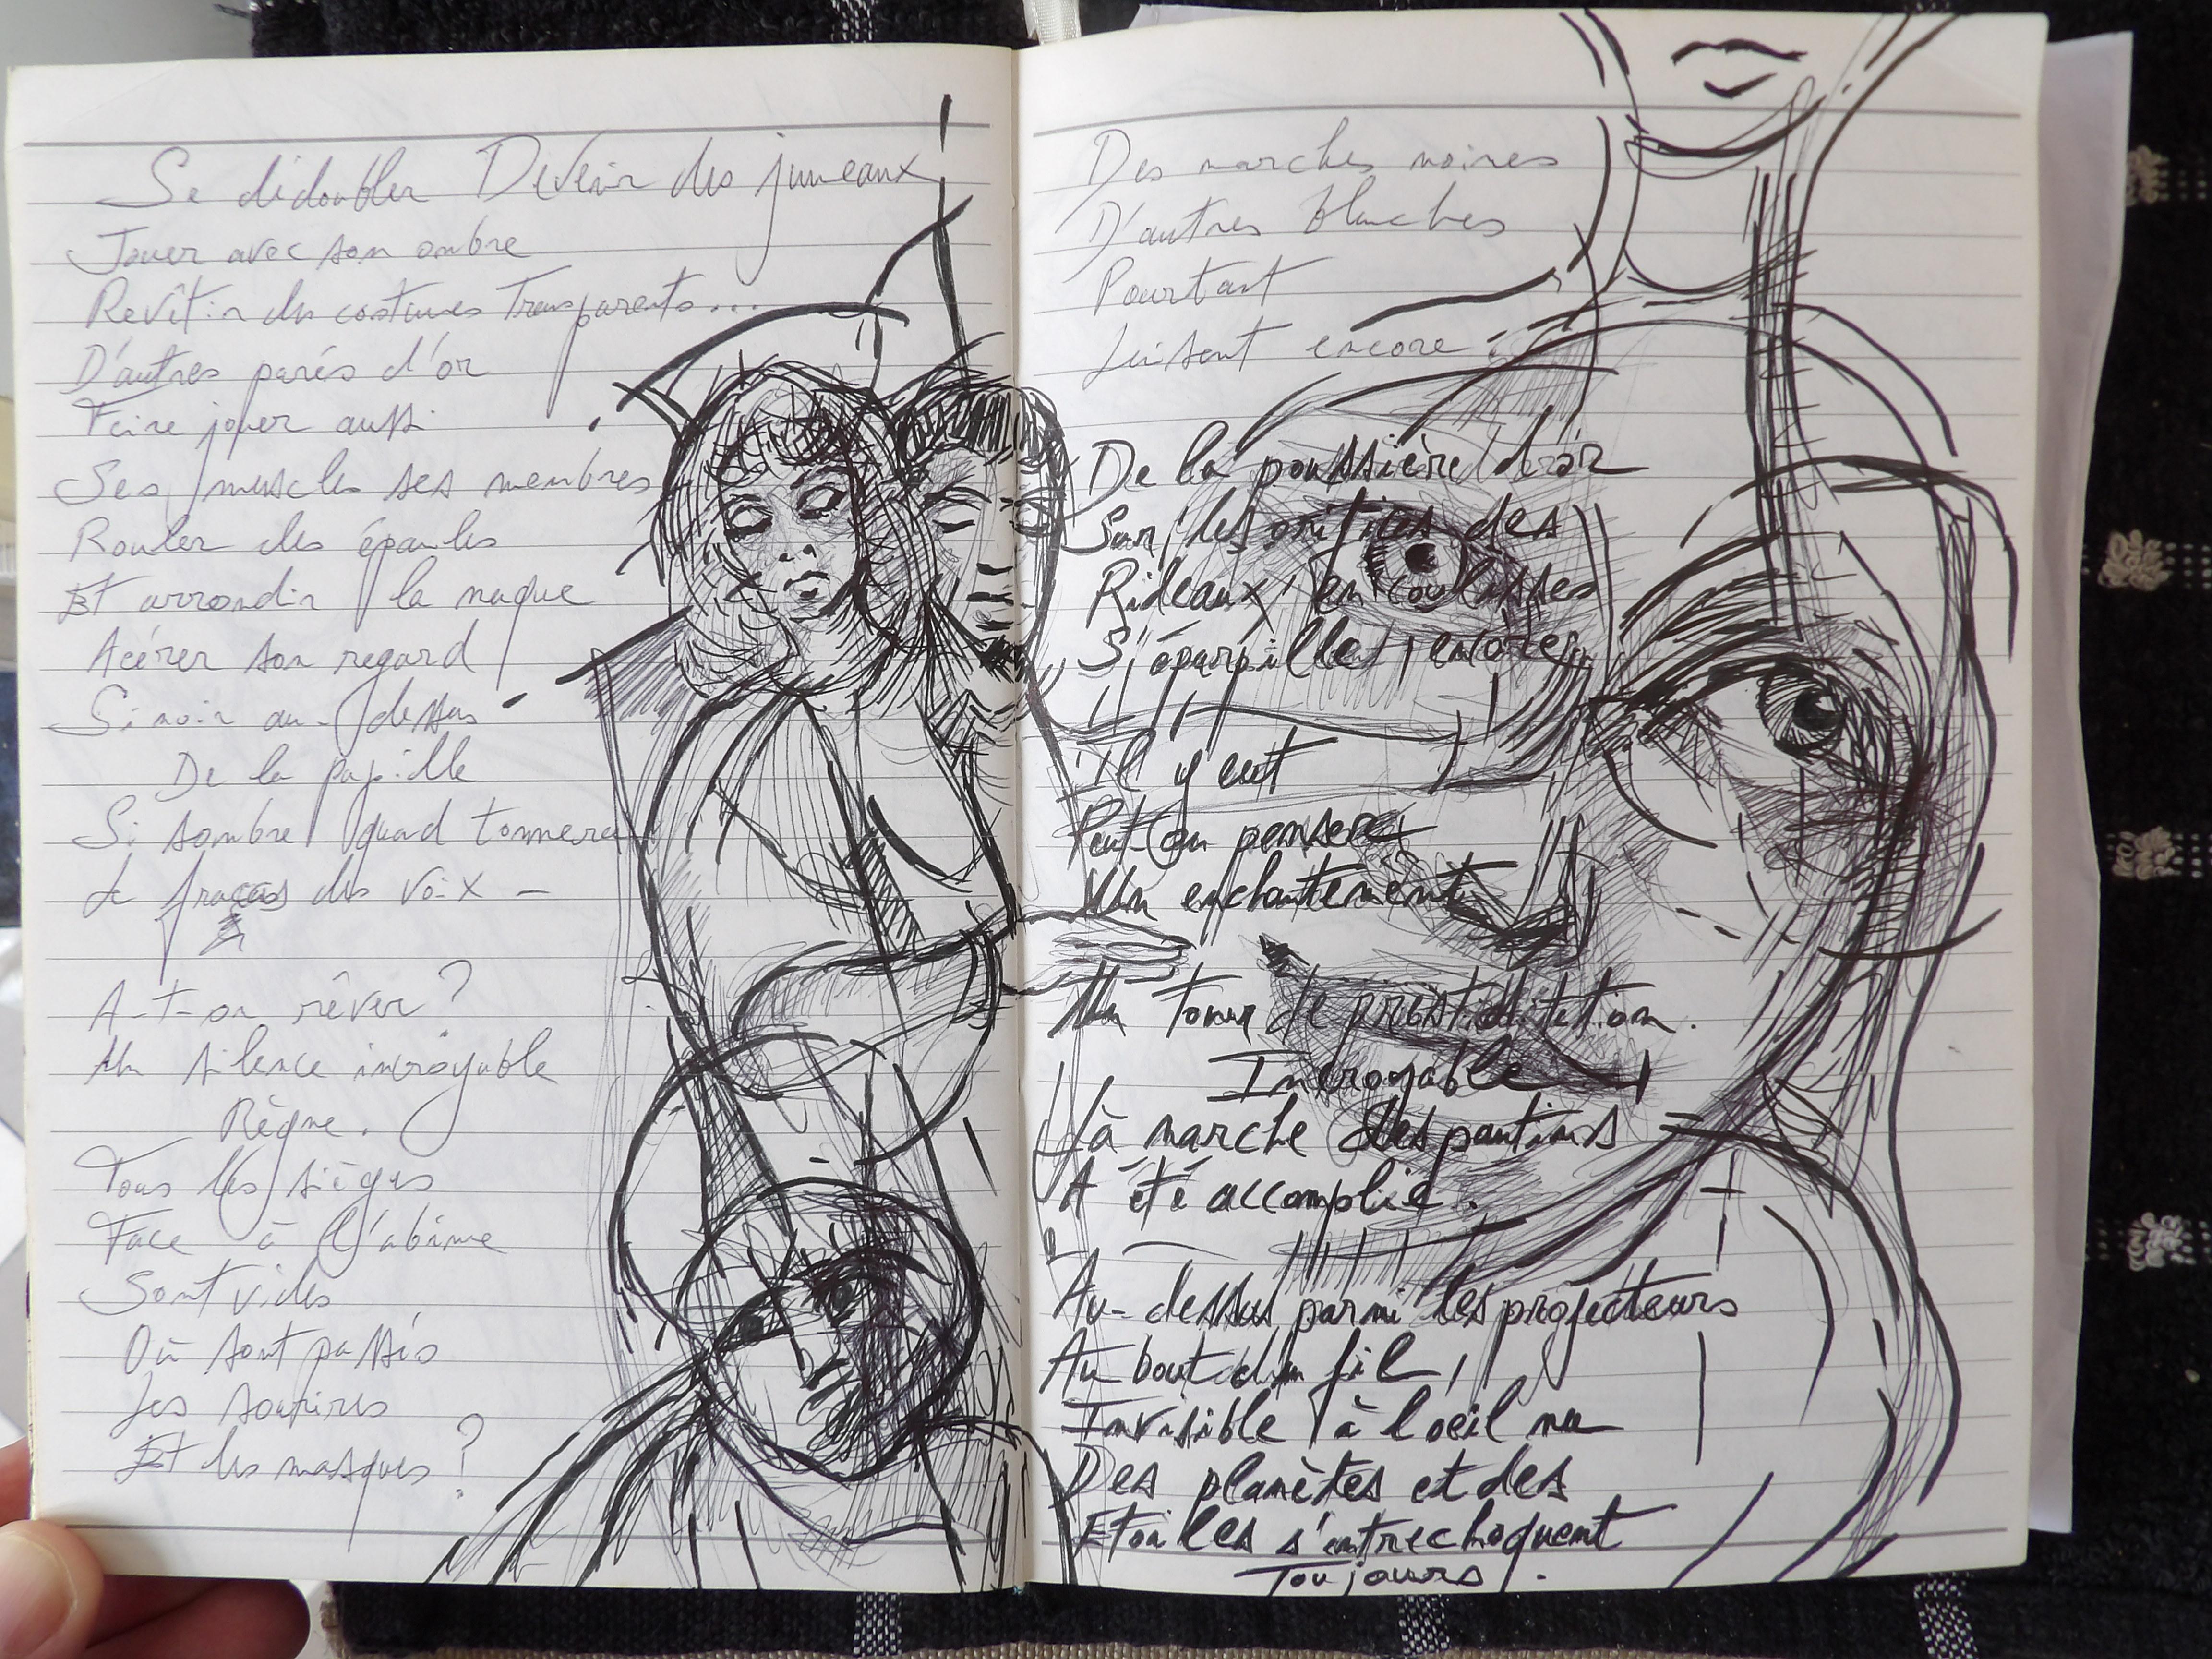 Se dédoubler Devenir des jumeaux
Jouer avec son ombre
Revêtir des costumes Transparents...
D'autres parés d'or
Faire jouer aussi
Ses muscles ses membres
Rouler des épaules
Et arrondir la nuque
Acérer son regard
Si noir au-dessus
De la pupille
Si sombre quand tonnera
Le fracas des voix –
A-t-on rêver ?
Un silence incroyable
Règne.
Tous les sièges
Face à l'abîme
Sont vides
Où sont passés
Les sourires
Et les masques ?
Des marches noires
D'autres blanches
Pourtant
Luisent encore.
De la poussière d'or
Sur les orifices des
Rideaux en coulisses
S'éparpille encore
Il y eut
Peut-on penser
Un enchantement
Un tour de prestidigitation.
Incroyable
La marche des pantins
A été accomplie.
Au-dessus parmi les projecteurs
Au bout d'un fil,
Invisible à l'oeil nu
Des planètes et des
Etoiles s'entrechoquent
Toujours.